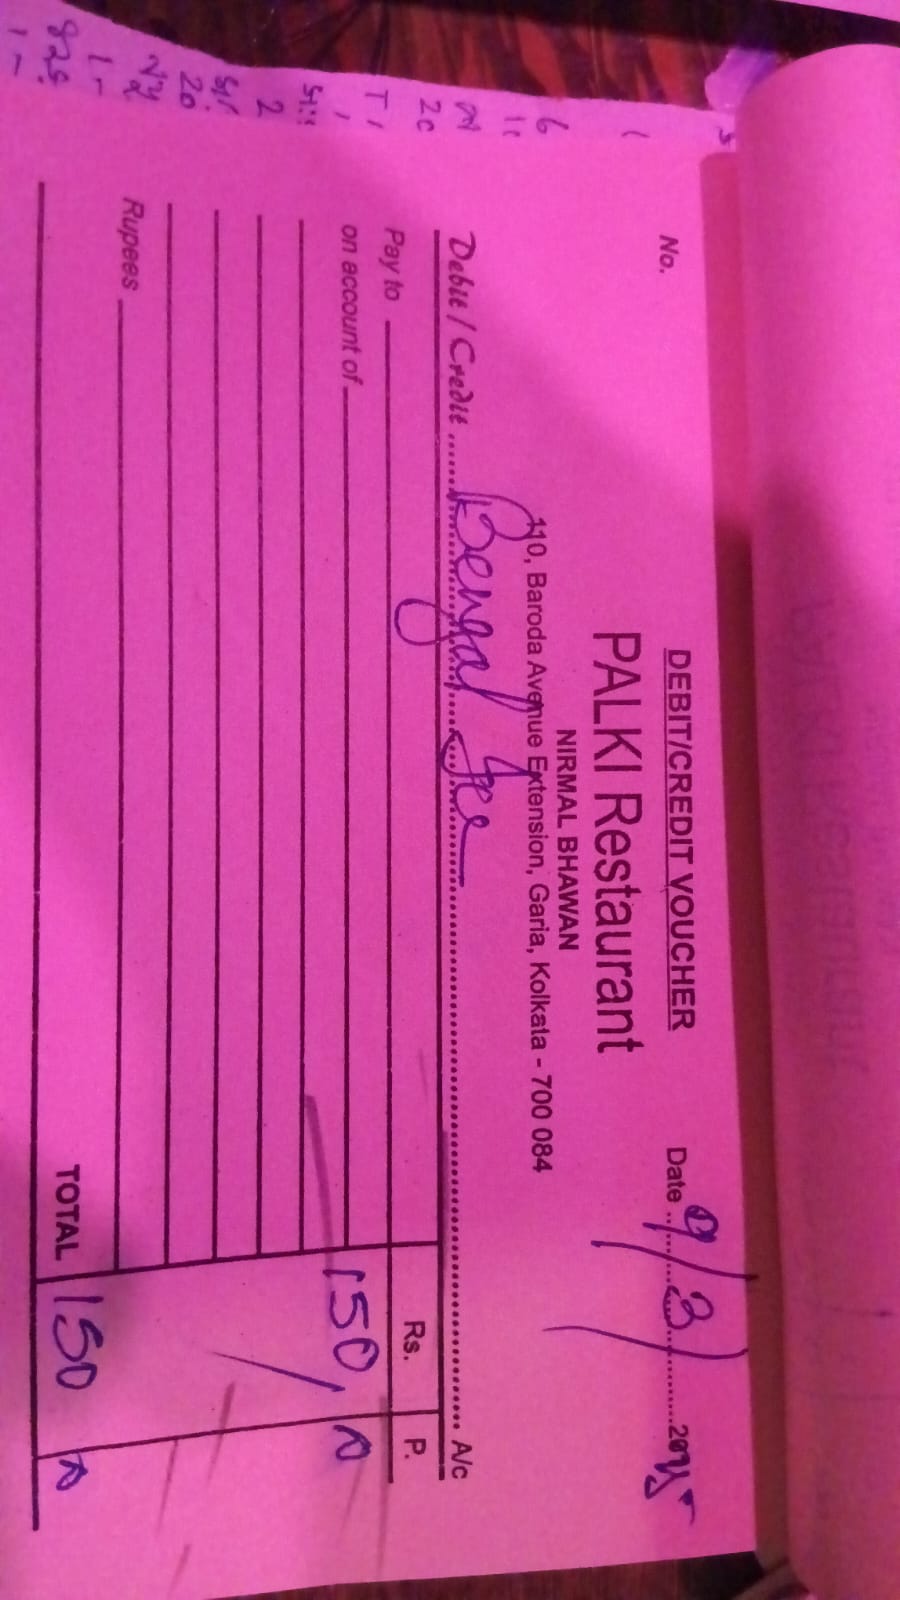 DEBIT/CREDIT VOUCHER
No.
PALKI Restaurant
Date 9/3/2025
NIRMAL BHAWAN
110, Baroda Avenue Extension, Garia, Kolkata - 700 084
Debit / Credit ........ Bengal Ice ........ A/c
Rs. P.
Pay to
on account of 150/
Rupees
TOTAL 150